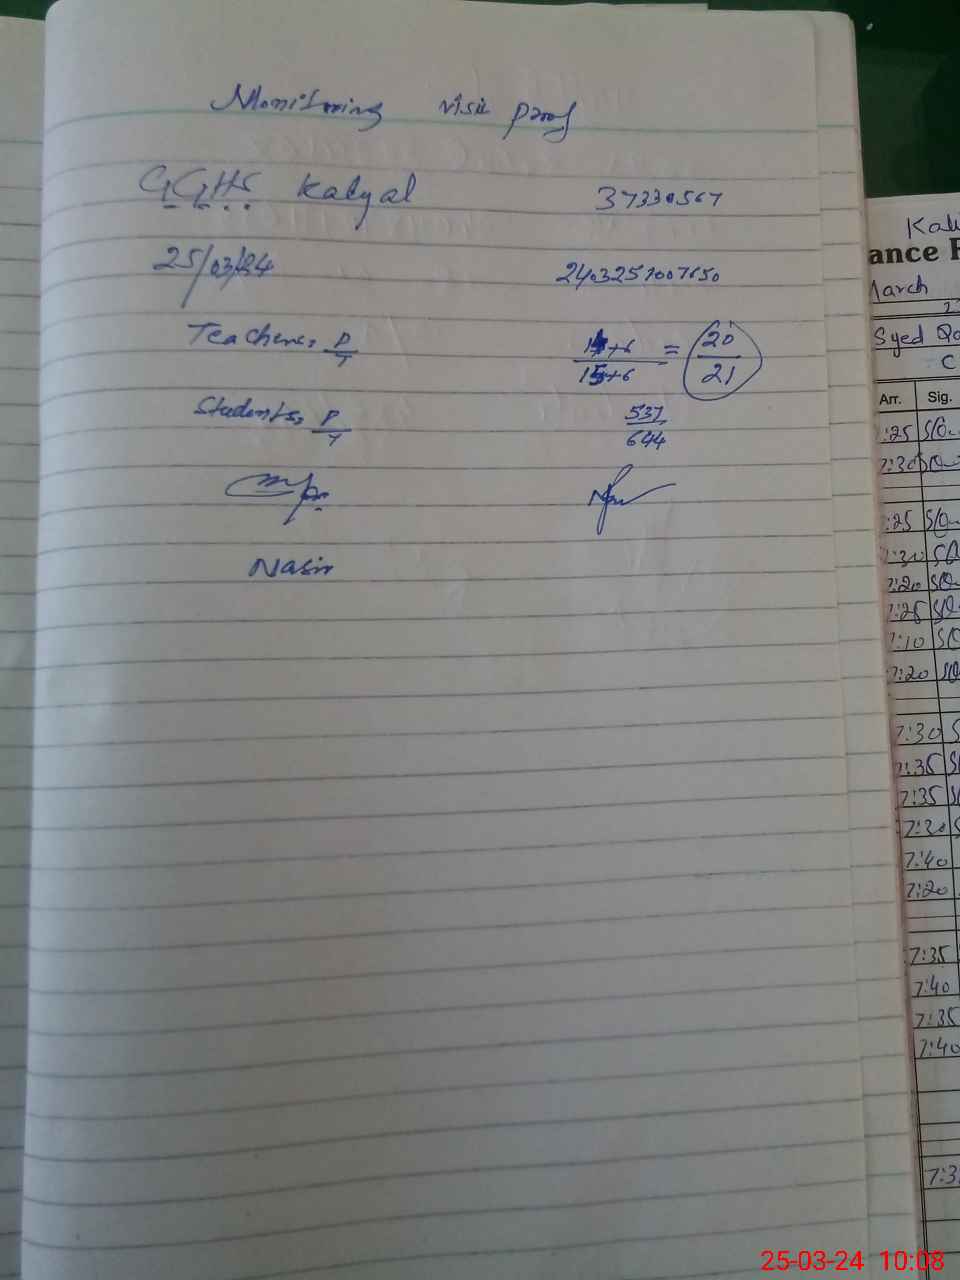 Monitoring visit proof
G.G.H.S. Kalyal 37330567
25/03/24 2403251007650
Teachers, P/T 14+6/15+6 = 20/21
Students, P/T 537/644
Nasir
ance
March
Syed
C
Arr. Sig.
7:25
7:30
7:25
7:30
7:20
7:25
7:10
7:20
7:30
7:35
7:35
7:30
7:40
7:20
7:35
7:40
7:35
7:40
25-03-24 10:08